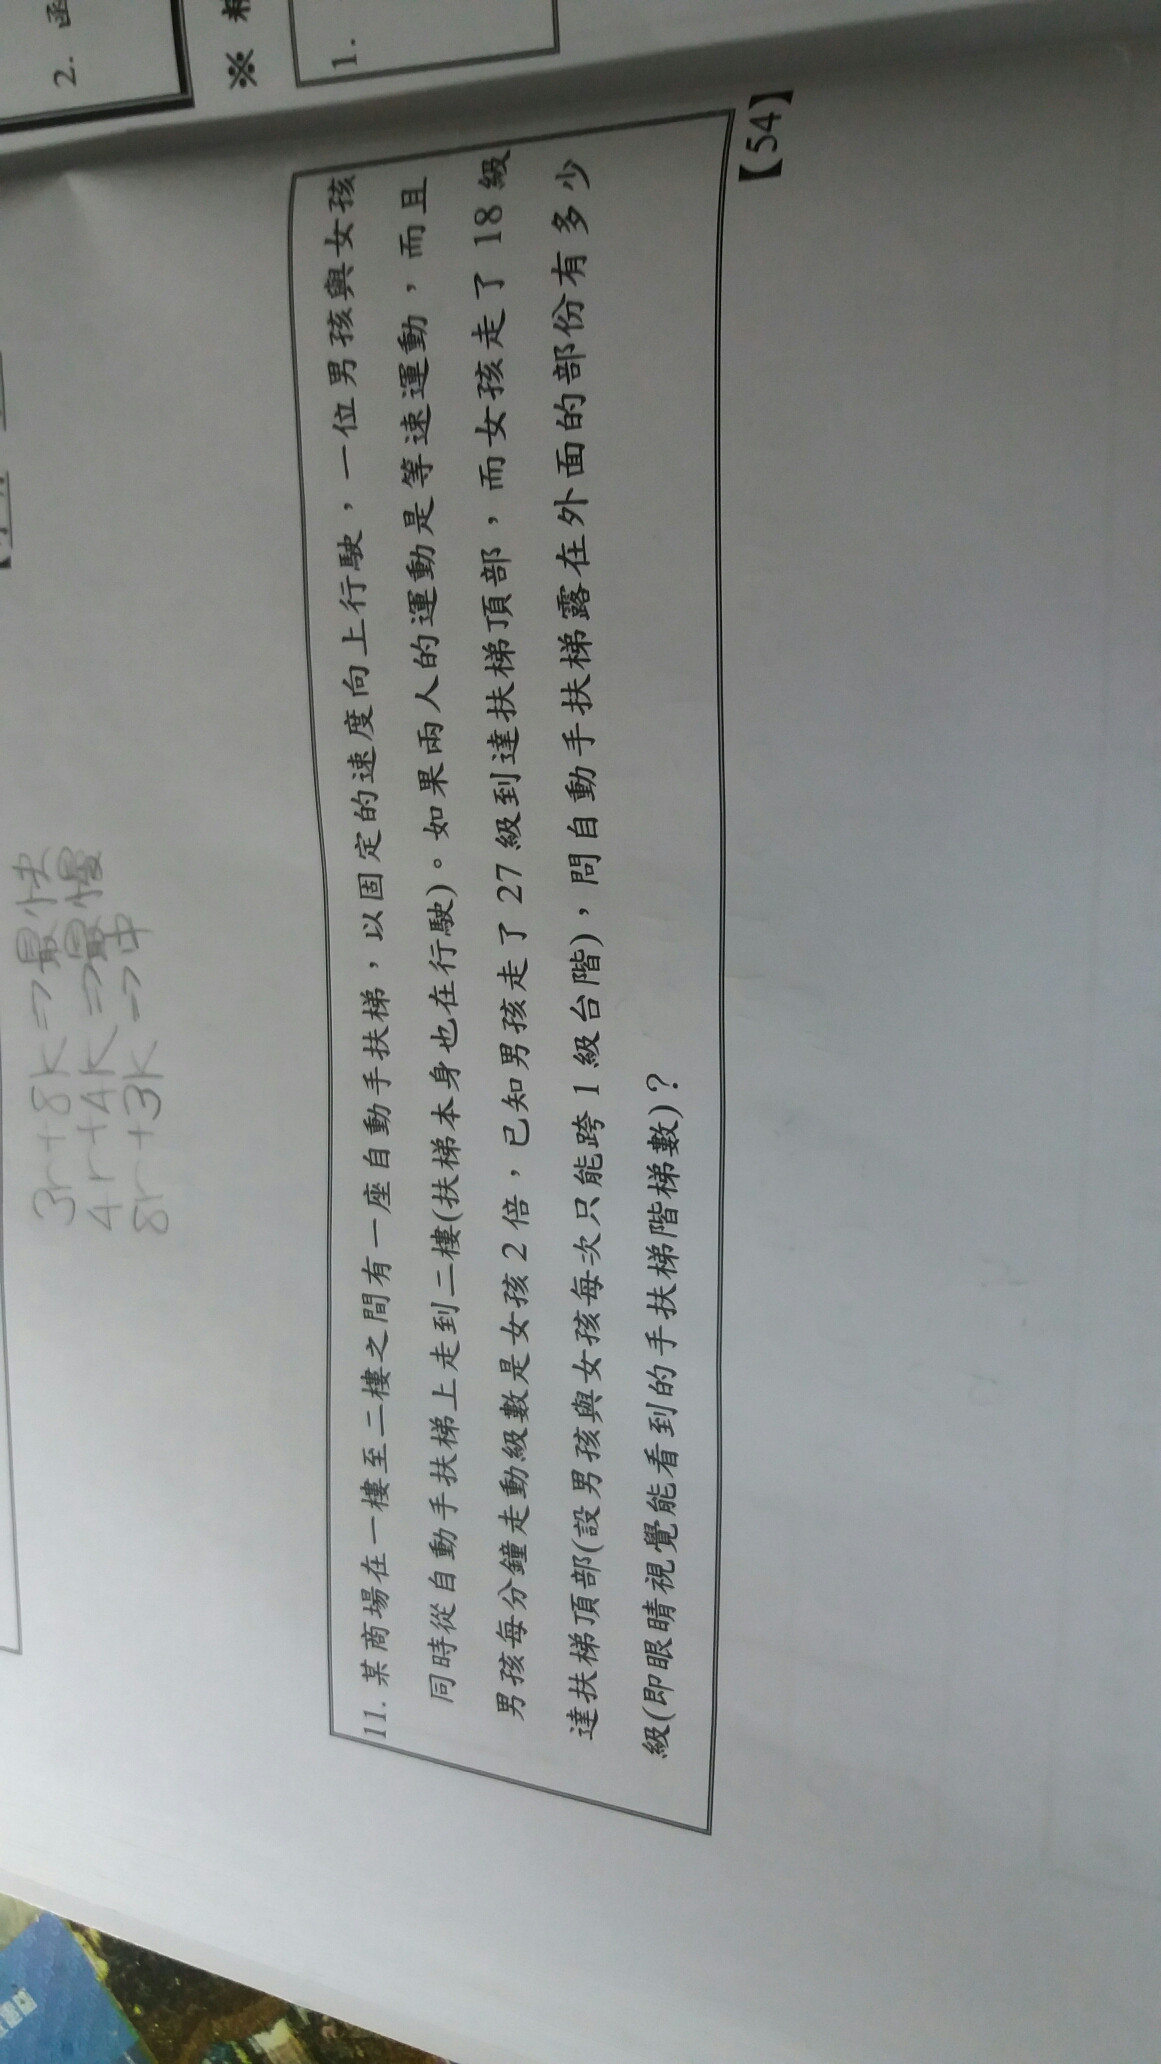 2. 函
※
1.
3r+8k⇒最快
4r+4k⇒最慢
8r+3k⇒中
11. 某商場在一樓至二樓之間有一座自動手扶梯，以固定的速度向上行駛，一位男孩與女孩
同時從自動手扶梯上走到二樓(扶梯本身也在行駛)。如果兩人的運動是等速運動，而且
男孩每分鐘走動級數是女孩2倍，已知男孩走了27級到達扶梯頂部，而女孩走了18級
達扶梯頂部(設男孩與女孩每次只能跨1級台階)，問自動手扶梯露在外面的部份有多少
級(即眼睛視覺能看到的手扶梯階梯數)？
【54】